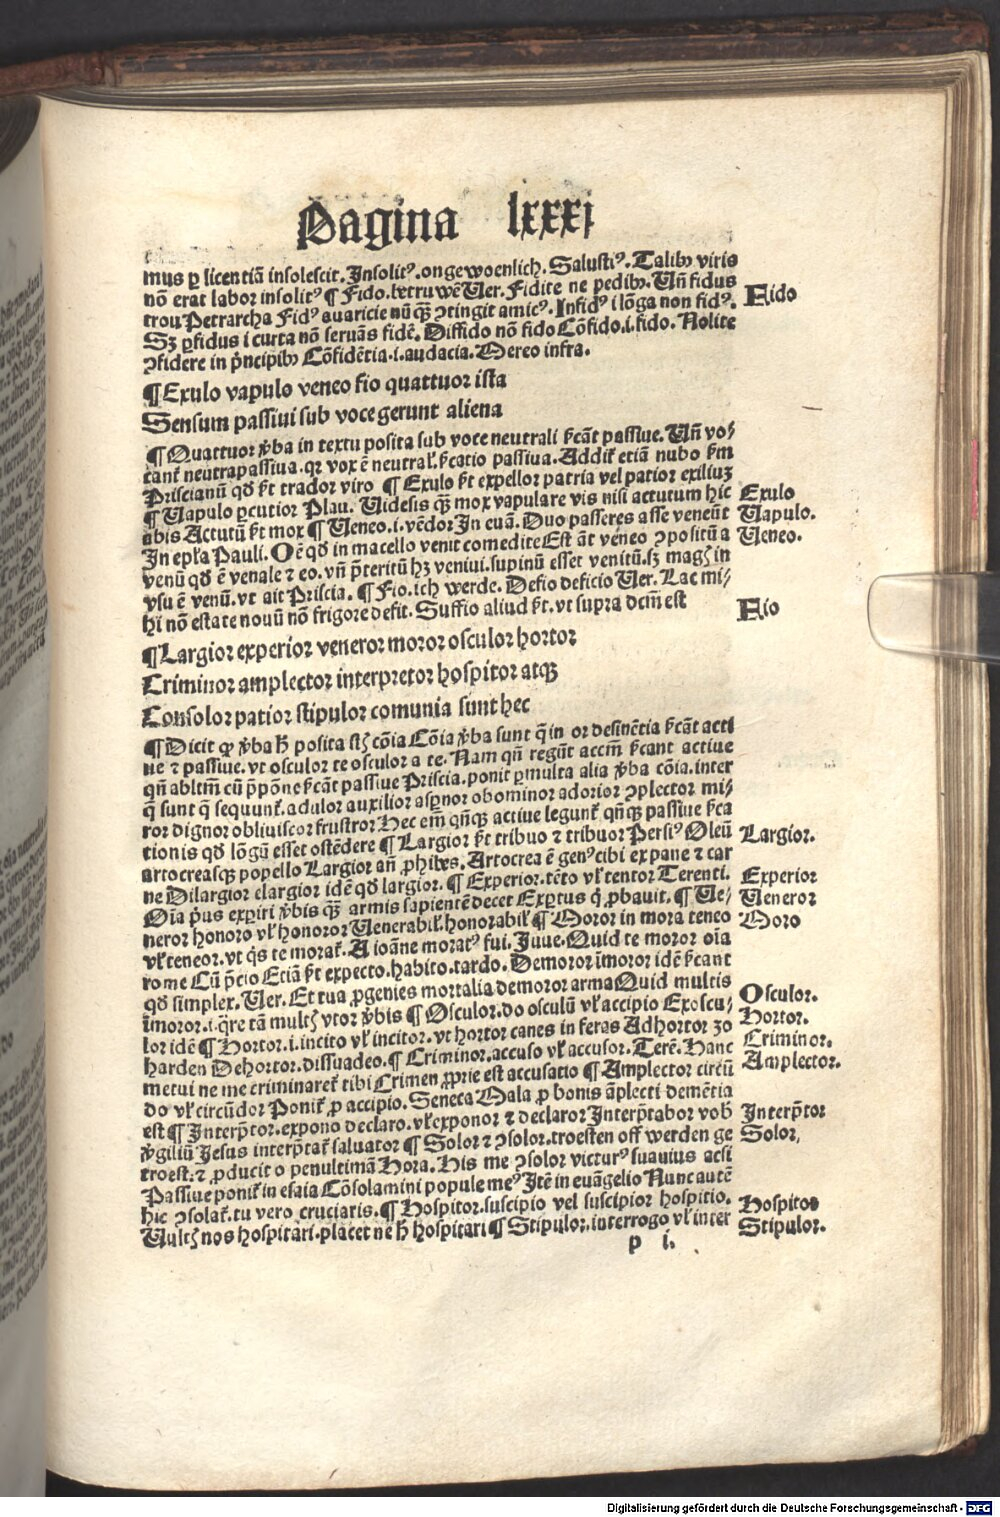 Pagina lxxxj
mus ꝑ licentiā insolescit. Insolitꝰ. ongewoenlich. Salustiꝰ. Talibꝫ viris
nō erat labor insolitꝰ ¶ Fido. Uer. Fidite ne pedibꝫ. Uñ fidus
trou Petrarcha Fidꝰ auaricie nū qꝫ ꝯtingit amicꝰ. Infidꝰ i lōga non fidꝰ.
Sꝫ ꝑfidus i curta nō seruās fidē. Diffido nō fido Cōfido .i. fido. Nolite
ꝯfidere in pͥncipibꝫ Cōfidētia .i. audacia. Mereo infra.
Fido
¶ Exulo vapulo veneo fio quattuor ista
Sensum passiui sub voce gerunt aliena
¶ Quattuor ꝟba in textu posita sub voce neutrali ſcāt passiue. Uñ vo⸗
cant̄ neutrapassiua. qꝛ vox ē neutral̄. ſcatio passiua. Addit̄ etiā nubo ſm
Priscianū qd̄ ſt trador viro ¶ Exulo ſt expellor patria vel patior exiliuꝫ
¶ Uapulo ꝑcutior Plau. Uidesis qꝫ mox vapulare vis nisi actutum hic
abis Actutū ſt mox ¶ Ueneo .i. vēdor In euā. Duo passeres asse veneūt
In epl̄a Pauli. Oē qd̄ in macello venit comedite Est āt vēneo ꝯpositū a
venū qd̄ ē venale ⁊ eo. vñ pͥteritū hꝫ veniui. supinū esset venitū. sꝫ magꝭ in
vsu ē venū. vt ait Priscia. ¶ Fio. ich werde. Defio deficio Uer. Lac mi⸗
hi nō estate nouū nō frigore defit. Suffio aliud ſt. vt supra dcm̄ est
Exulo
Uapulo.
Ueneo.
Fio
¶ Largior experior veneror moror osculor hortor
Criminor amplector interpretor hospitor atqꝫ
Consolor patior stipulor comunia sunt hec
¶ Dicit ꝙ ꝟba h̄ posita st̄ cōia Cōia ꝟba sunt q̄ in or desinētia ſcāt acti
ue ⁊ passiue. vt osculor te osculor a te. Nam qn̄ regūt accm̄ ſcant actiue
qn̄ abltm̄ cū pͥpōne ſcāt passiue Priscia. ponit ꝑmulta alia ꝟba cōia. inter
q̄ sunt q̄ sequunt̄. adulor auxilior aspͥnor obominor adorior ꝯplector mi⸗
ror dignor obliuiscor frustror Hec em̄ qn̄qꝫ actiue legunt̄ qn̄qꝫ passiue ſca
tionis qd̄ lōgū esset ostēdere ¶ Largior ſt tribuo ⁊ tribuor Persiꝰ Oleū
artocreasqꝫ popello Largior an̄ ꝓhibes. Artocrea ē genꝰ cibi ex pane ⁊ car
ne Dilargior elargior idē qd̄ largior. ¶ Experior. tēto vl̄ tentor Terenti.
Oīa pͥus exꝑiri ꝟbis qꝫ armis sapientē decet Exꝑtus qͥ ꝓbauit. ¶ Ue⸗
neror honoro vl̄ honoror Uenerabil̄. honorabil̄ ¶ Moror in mora teneo
vl̄ teneor. vt qͥs te morat̄. A ioāne moratꝰ fui. Juue. Quid te moror oīa
rome Cū pͥcio Etiā ſt expecto. habito. tardo. Demoror imoror idē ſcant
qd̄ simplex. Uer. Et tua ꝓgenies mortalia demoror arma Quid multis
īmoror .i. qͥre tā multꝭ vtor ꝟbis ¶ Osculor. do osculū vl̄ accipio Exoscu⸗
lor idē ¶ Hortor .i. incito vl̄ incitor. vt hortor canes in feras Adhortor zo
harden Dehortor. dissuadeo. ¶ Criminor. accuso vl̄ accusor. Terē. Hanc
metui ne me criminaret̄ tibi Crimen ꝓprie est accusatio ¶ Amplector circū
do vl̄ circūdor Ponit̄ ꝓ accipio. Seneca Mala ꝓ bonis āplecti demētia
est ¶ Interpͥtor. expono declaro. vl̄ exponor ⁊ declaror Interpͥtabor vob̄
ꝟgiliū Jesus interpͥtat̄ saluator ¶ Solor ⁊ ꝯsolor. troesten off werden ge
troest. ⁊ ꝓducit o penultimā Hora. His me ꝯsolor victurꝰ suauius acsi
Passiue ponit̄ in esaia Cōsolamini popule meꝰ Itē in euāgelio Nunc autē
hic ꝯsolat̄. tu vero cruciaris. ¶ Hospitor. suscipio vel suscipior hospitio.
Uultꝭ nos hospitari. placet ne h̄ hospitari ¶ Stipulor. interrogo vl̄ inter
Largior.
Experior
Ueneror
Moro
Osculor.
Hortor.
Criminor.
Amplector.
Interpͥtor
Solor,
Hospitor
Stipulor.
p i.
Digitalisierung gefördert durch die Deutsche Forschungsgemeinschaft - DFG